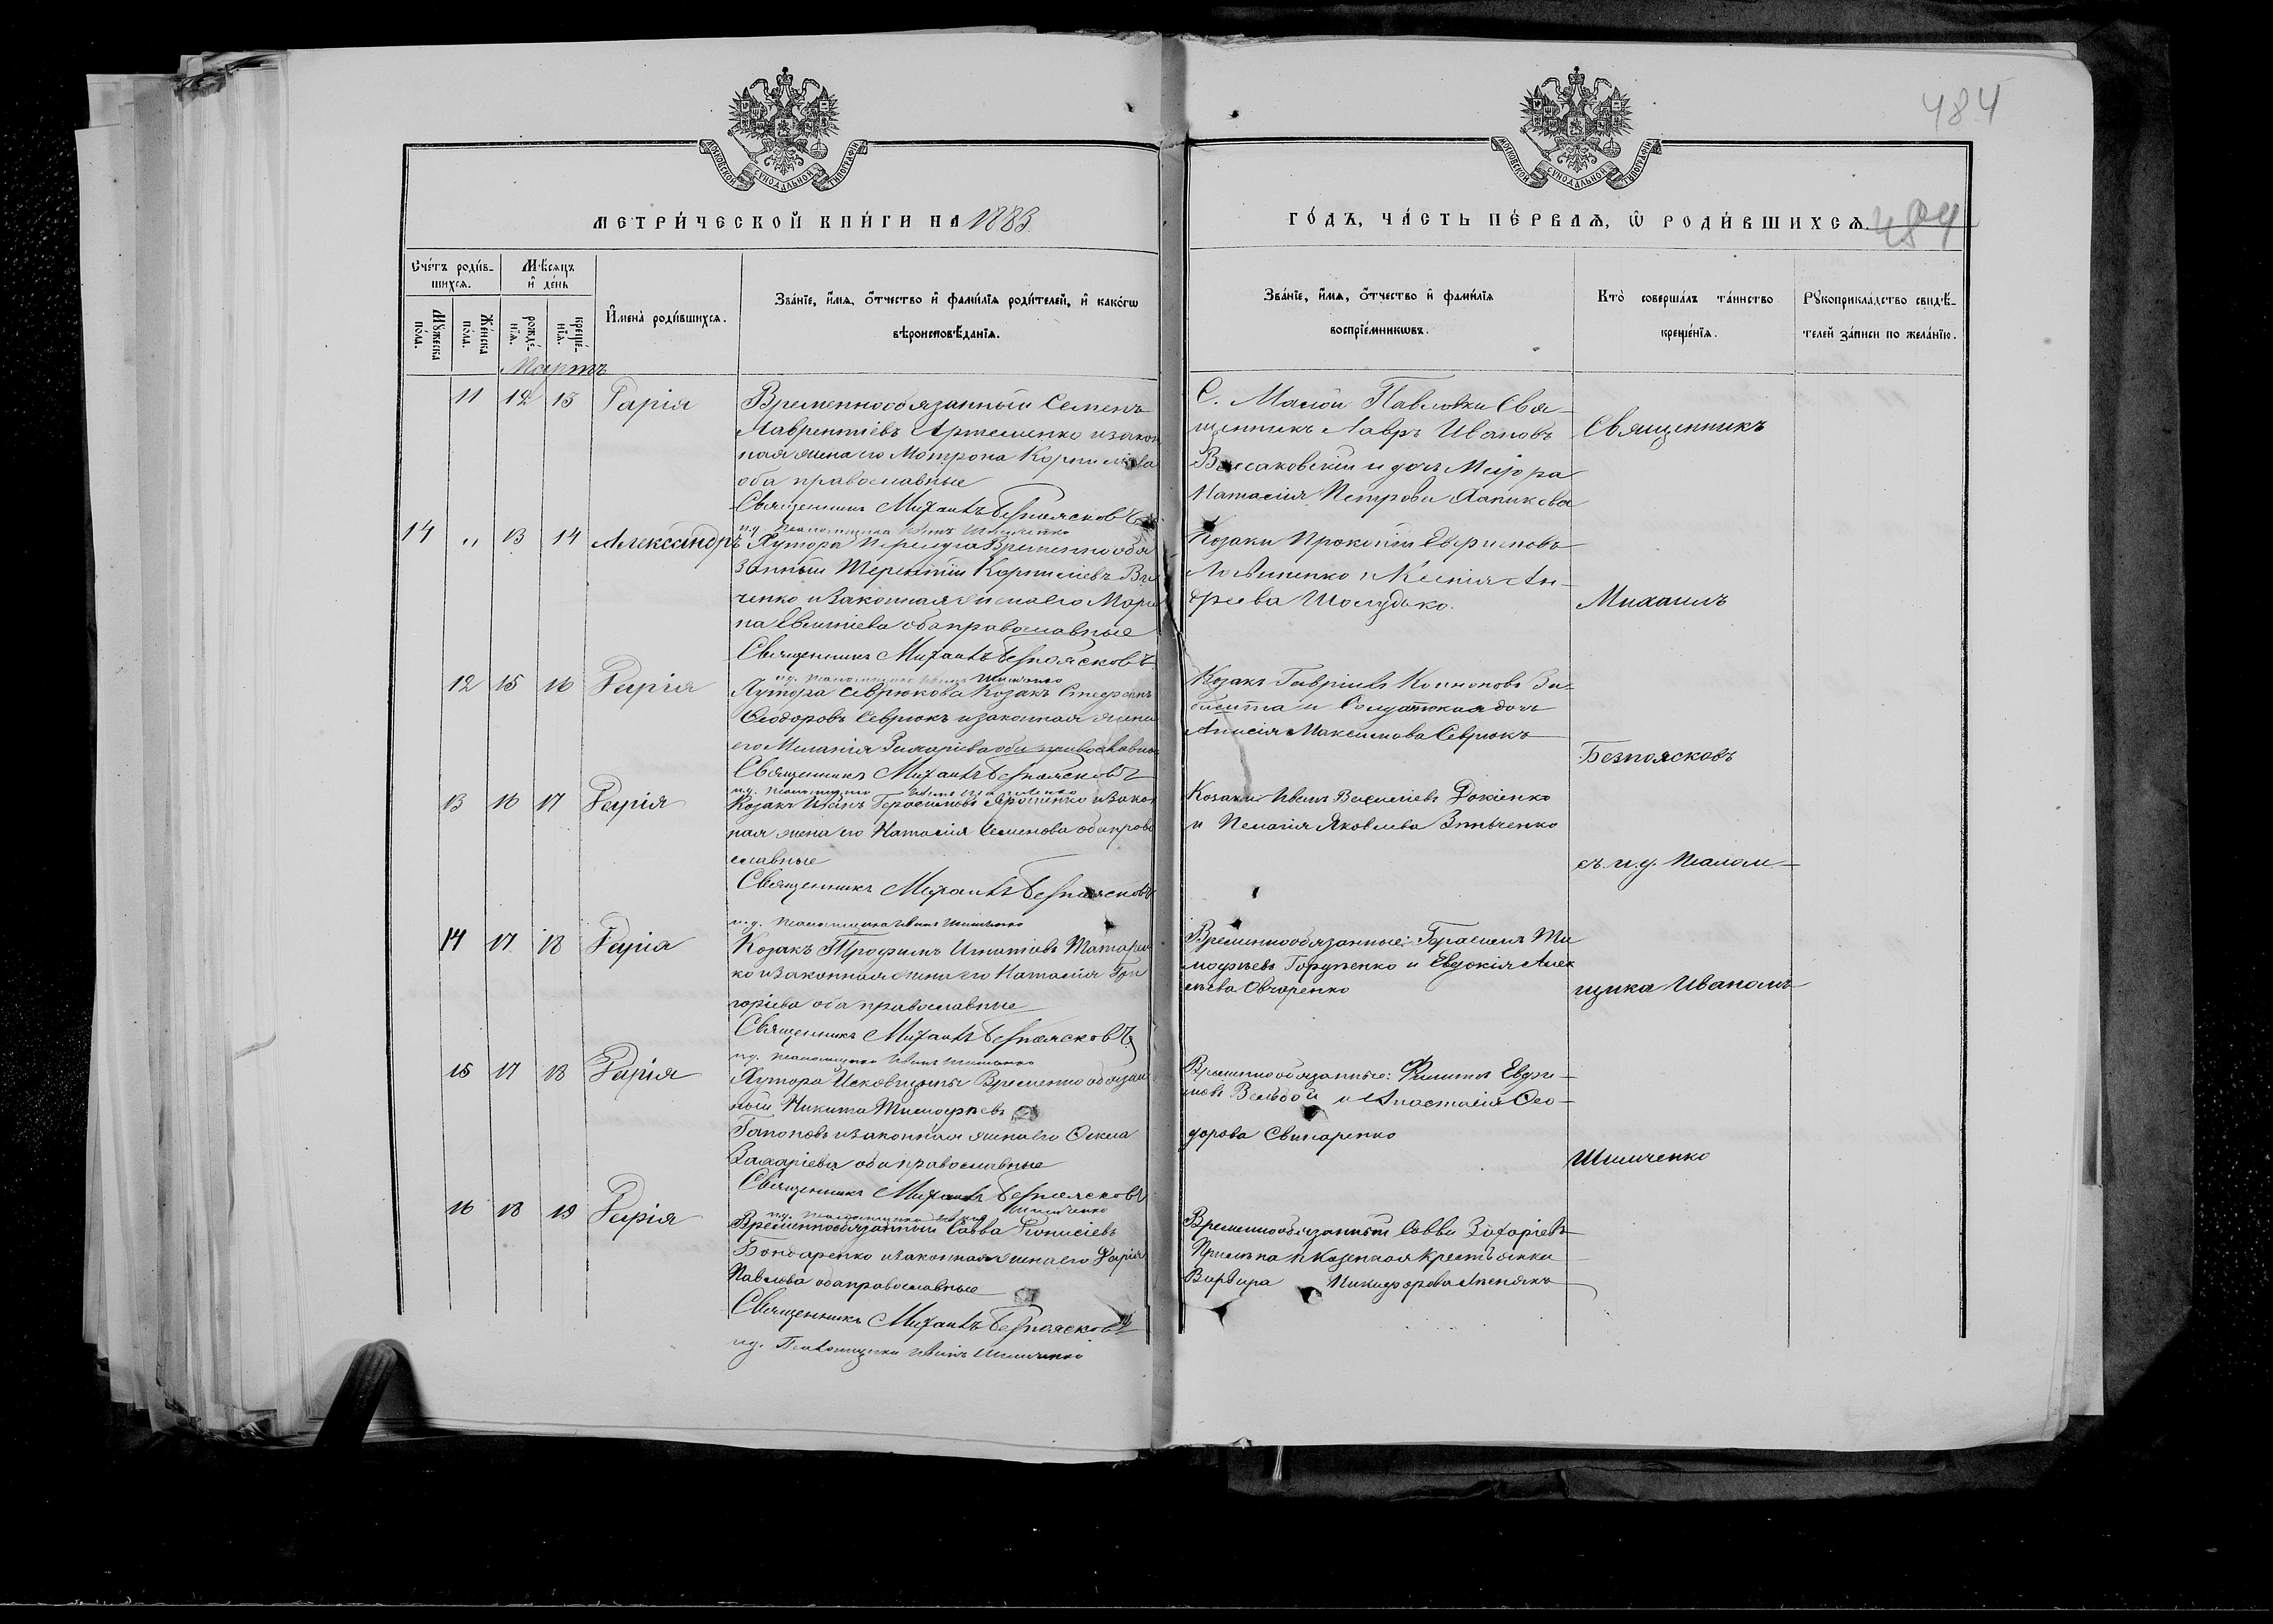 484
МОСКОВСКОЙ СѴНОДАЛЬНОЙ ТИПОГРАФІИ
МОСКОВСКОЙ СѴНОДАЛЬНОЙ ТИПОГРАФІИ
МЕТРИ́ЧЕСКОЙ КНИ́ГИ НА 1883.
ГО́ДЪ, ЧА́СТЬ ПЕ́РВАѦ, Ѿ РОДИ́ВШИХСѦ. 484
Сче́тъ роди́в-
шихсѧ.
Мꙋ́жеска
по́ла.
Же́нска
по́ла.
Мѣ́сяцъ
и де́нь
рожде́-
нїѧ.
креще́-
нїѧ.
Имена̀ роди́вшихсѧ.
Зва́нїе, и́мѧ, ѻ́тчество и фами́лїѧ роди́телей, и како́гѡ
вѣроисповѣ́данїѧ.
Зва́нїе, и́мѧ, ѻ́тчество и фами́лїѧ
воспрїе́мникѡвъ.
Кто̀ соверша́лъ та́инство
креще́нїѧ.
Рꙋкоприкла́дство свидѣ́-
телей за́писи по жела́нїю.
Мартъ
11 12 13 Дарія
Временнообязанный Семенъ
Лаврентіевъ Артеменко и закон
ная жена его Мотрона Корниліева
оба православные
Священникъ Михаилъ Безпоясковъ
С. Малой Павловки Свя-
щенникъ Лавръ Ивановъ
и дочь Маіора
Наталія Петрова
Священникъ
и.д. Псаломщика Иванъ Шимченко
14 " 13 14 Александръ
Хутора Временнообя
занный Терентій Корниліевъ
ченко и законная жена его Мари
на оба православные
Священникъ Михаилъ Безпоясковъ
Козаки Прокопій Ефимовъ
и Ксенія Ан-
дреева Шолудько.
Михаилъ
и.д. Псаломщика Иванъ Шимченко
12 15 16 Дарія
Хутора Севрюкова Козакъ Стефанъ
Ѳеодоровъ Севрюкъ и законная жена
его Меланія Захаріева оба православные
Священникъ Михаилъ Безпоясковъ
Козакъ Гавріилъ Кононовъ
и Солдатская дочь
Анисія Максимова Севрюкъ
Безпоясковъ
и.д. Псаломщика Иванъ Шимченко
13 16 17 Дарія
Козакъ Иванъ Герасимовъ Ярошенко и закон
ная жена его Наталія Семенова оба право
славные
Священникъ Михаилъ Безпоясковъ
Козаки Иванъ Василіевъ Докіенко
и Пелагія Яковлева Зинченко
съ и.д. Псалом-
и.д. Псаломщика Иванъ Шимченко
14 17 18 Дарія
Козакъ Трофимъ Игнатіевъ Татарен
ко и законная жена его Наталія Гри
горіева оба православные
Священникъ Михаилъ Безпоясковъ
Временнообязанные: Герасимъ Ти
моѳѣевъ и Евдокія Алек
сѣева Овчаренко
щика Иваномъ
и.д. Псаломщика Иванъ Шимченко
15 17 18 Дарія
Хутора Исковщины Временно обязан
ный Никита Тимоѳѣевъ
Гапоновъ и законная жена его Ѳекла
Захаріева оба православные
Священникъ Михаилъ Безпоясковъ
Временнообязанные: Филиппъ Евфи-
мовъ и Анастасія Ѳео-
дорова Свинаренко
Шимченко
и.д. Псаломщика Иванъ Шимченко
16 18 19 Дарія
Временнообязанный Савва Діонисіевъ
Бондаренко и законная жена его Дарія
Павлова оба православные
Священникъ Михаилъ Безпоясковъ
и.д. Псаломщика Иванъ Шимченко
Временнообязанный Савва Захаріевъ
и Казенная крестьянка
Варвара Никифорова